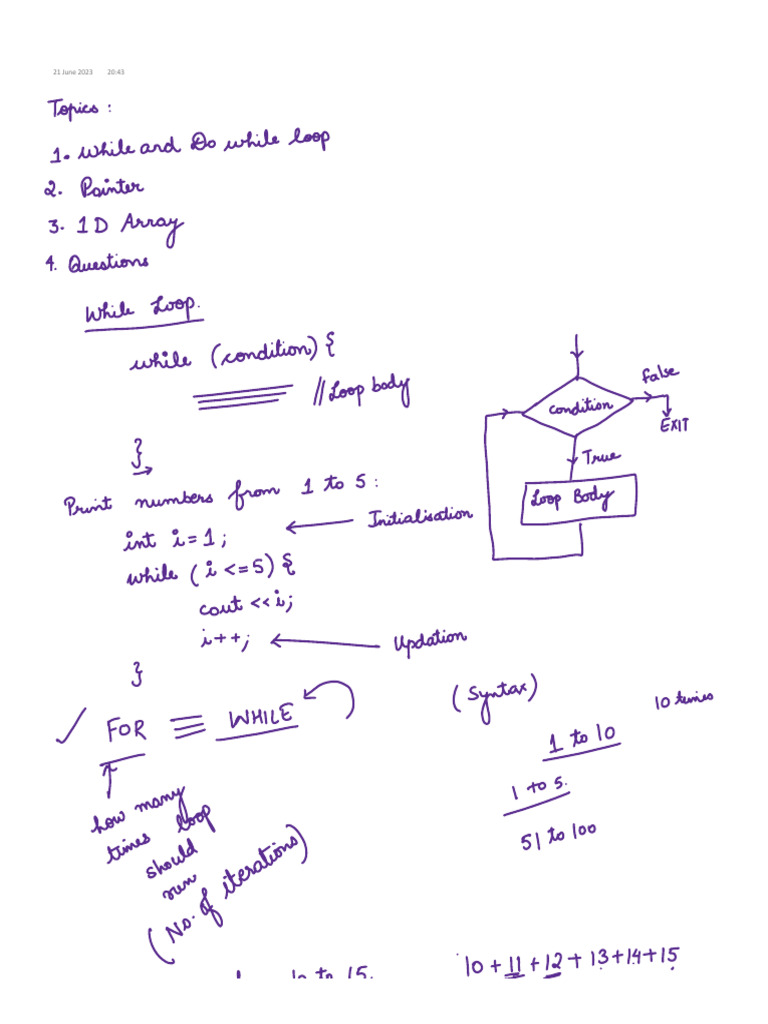 21 June 2023 20:43
Topics :
1. While and Do while loop
2. Pointer
3. 1 D Array
4. Questions
While Loop.
while (condition) {
// Loop body
}
condition
False
EXIT
True
Loop Body
Print numbers from 1 to 5 :
int i = 1 ;
Initialisation
while ( i <= 5) {
cout << i;
i++;
Updation
}
FOR ≡ WHILE
(Syntax)
10 times
1 to 10
1 to 5.
51 to 100
how many
times loop
should
run
(No. of iterations)
10 to 15.
10 + 11 + 12 + 13 + 14 + 15